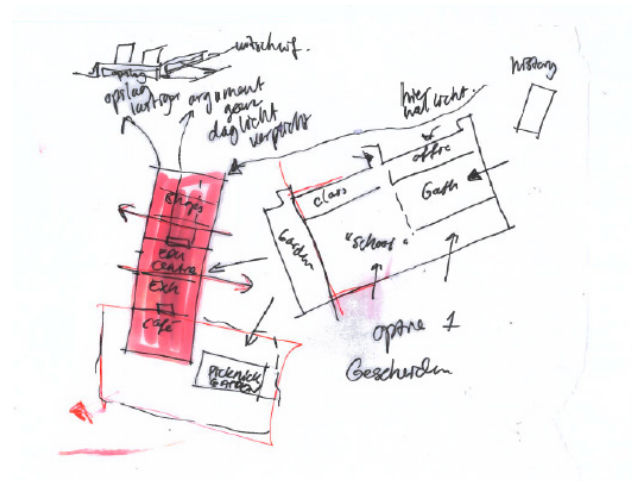 uitschuif.
opslag
opslag
lastiger argument
geen
dag licht
verplicht
history
hier
wel licht.
office
class
Gath
Garden
"School"
Edu
centre
Exh
café
picknick
garden
optie 1
Gescheiden